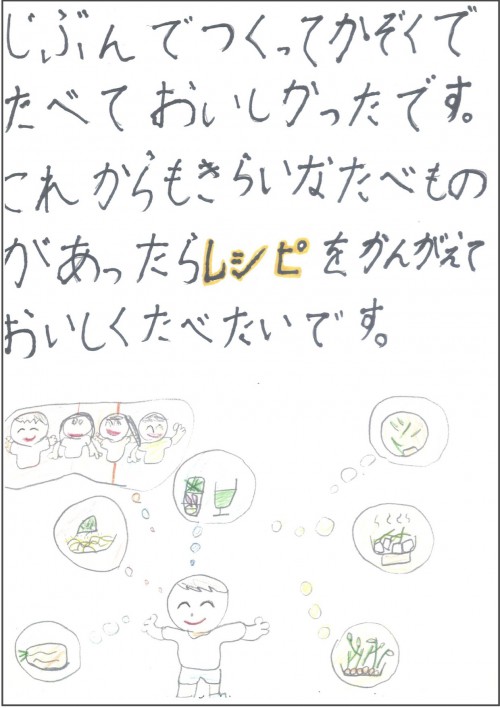 じぶんでつくってかぞくで
たべておいしかったです。
これからもきらいなたべもの
があったらレシピをかんがえて
おいしくたべたいです。